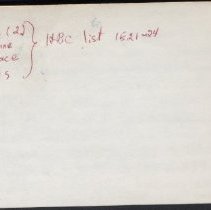 (2)
ine
ace
s
HBC list 1521-24